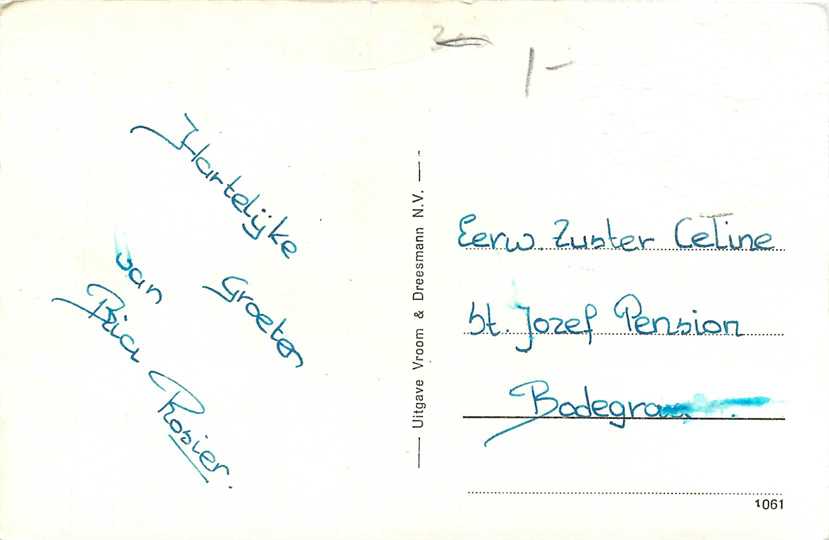 Hartelijke
Groeten
van
Ria Rosier.
Uitgave Vroom & Dreesmann N.V.
Eerw. Zuster Celine
St. Jozef Pension
1-
1061